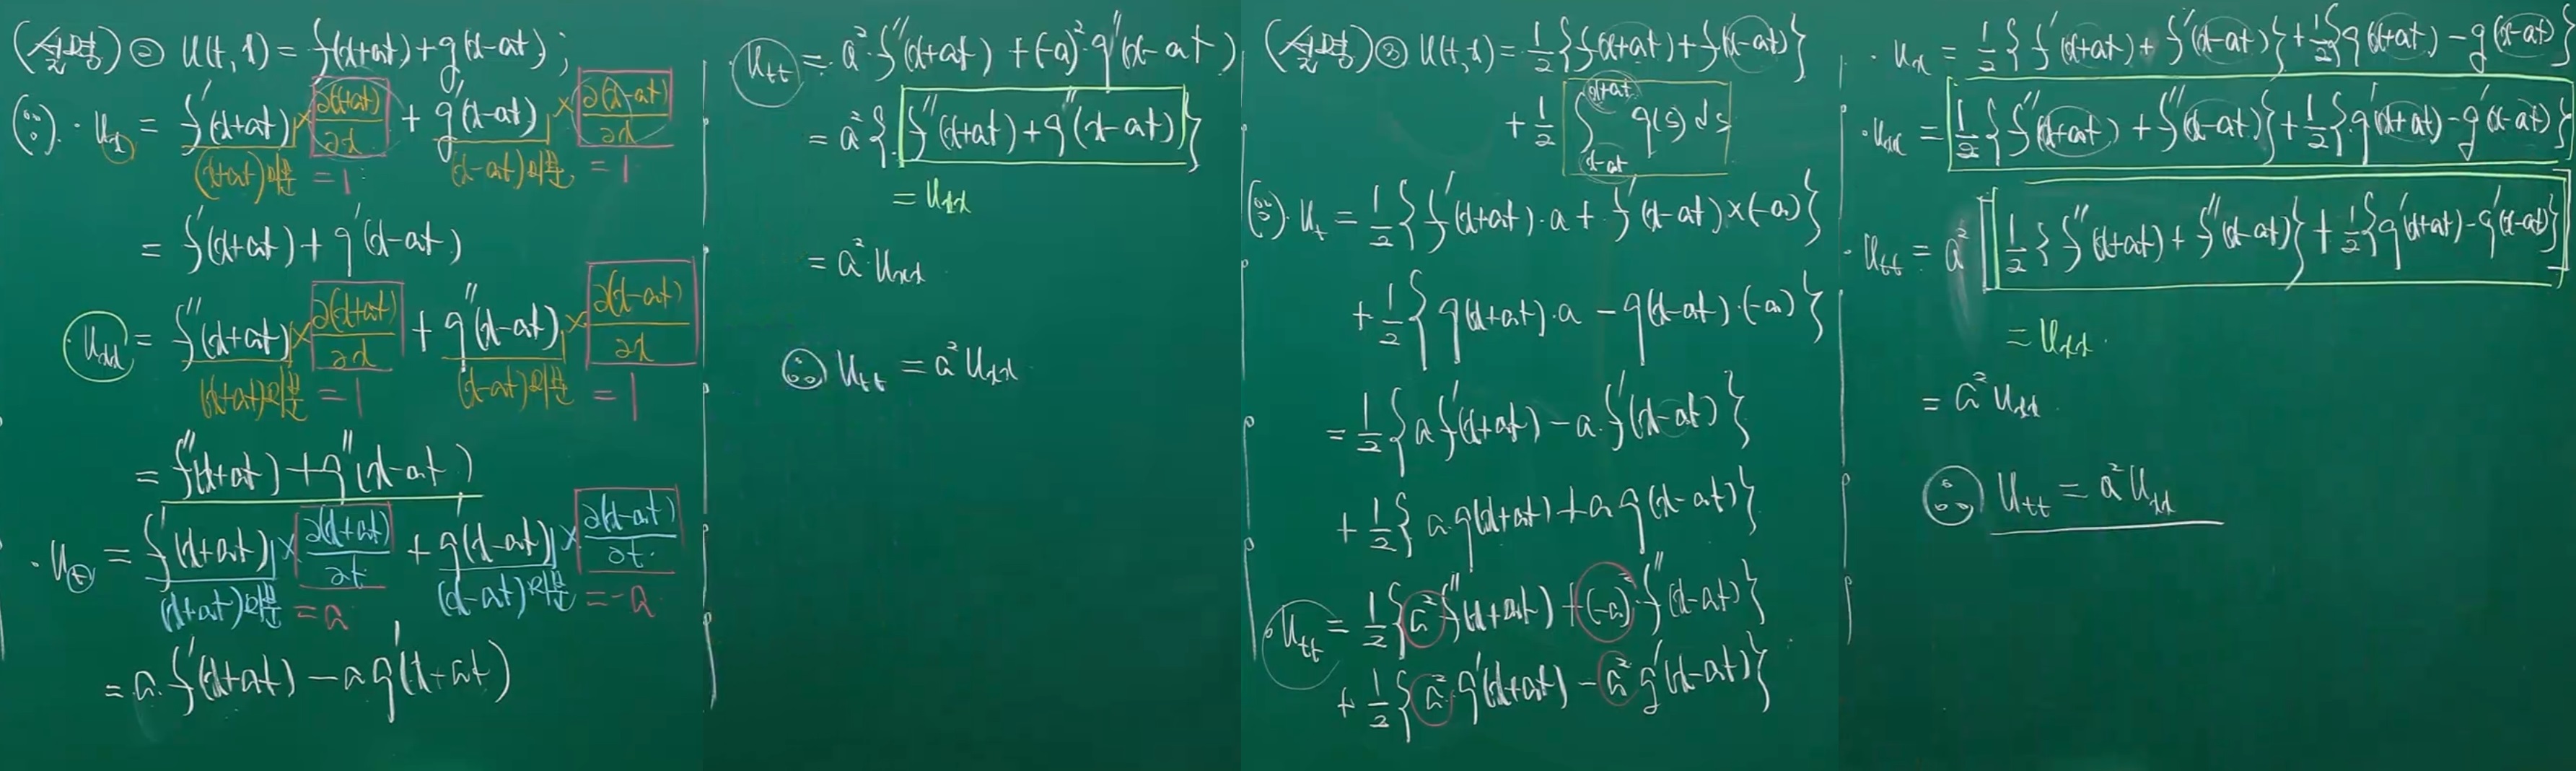 ② u(t, x) = f(x+at) + g(x-at) ;
(∵) · u_x = f'(x+at) × ∂(x+at)/∂x + g'(x-at) × ∂(x-at)/∂x
(x+at)에 = 1 (x-at)에 = 1
= f'(x+at) + g'(x-at)
· u_xx = f''(x+at) × ∂(x+at)/∂x + g''(x-at) × ∂(x-at)/∂x
(x+at)에 = 1 (x-at)에 = 1
= f''(x+at) + g''(x-at)
· u_t = f'(x+at) × ∂(x+at)/∂t + g'(x-at) × ∂(x-at)/∂t
(x+at)에 = a (x-at)에 = -a
= a·f'(x+at) - a g'(x-at)
· u_tt = a²·f''(x+at) + (-a)² g''(x-at)
= a² { f''(x+at) + g''(x-at) }
= u_xx
= a² u_xx
∴ u_tt = a² u_xx
③ u(t, x) = 1/2 { f(x+at) + f(x-at) }
+ 1/2 ∫_{x-at}^{x+at} g(s) ds
(∵) · u_t = 1/2 { f'(x+at)·a + f'(x-at)×(-a) }
+ 1/2 { g(x+at)·a - g(x-at)·(-a) }
= 1/2 { a f'(x+at) - a·f'(x-at) }
+ 1/2 { a g(x+at) + a g(x-at) }
· u_tt = 1/2 { a² f''(x+at) + (-a)²·f''(x-at) }
+ 1/2 { a² g'(x+at) - a² g'(x-at) }
· u_x = 1/2 { f'(x+at) + f'(x-at) } + 1/2 { g(x+at) - g(x-at) }
· u_xx = 1/2 { f''(x+at) + f''(x-at) } + 1/2 { g'(x+at) - g'(x-at) }
· u_tt = a² [ 1/2 { f''(x+at) + f''(x-at) } + 1/2 { g'(x+at) - g'(x-at) } ]
= u_xx
= a² u_xx
∴ u_tt = a² u_xx